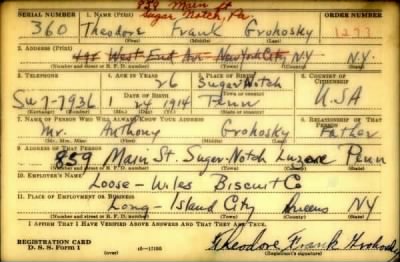 859 Main St
Sugar Notch, Pa.
SERIAL NUMBER 1. NAME (Print) ORDER NUMBER
360 Theodore Frank Grohosky 1273
(First) (Middle) (Last)
2. ADDRESS (Print)
West End Ave New York City N.Y. N.Y.
(Number and street or R. F. D. number) (Town) (County) (State)
3. TELEPHONE 4. AGE IN YEARS 5. PLACE OF BIRTH 6. COUNTRY OF CITIZENSHIP
26 Sugar Notch
(Town or county)
Su 7-7936 DATE OF BIRTH Penn U.S.A
1 24 1914
(Exchange) (Number) (Mo.) (Day) (Yr.) (State or country)
7. NAME OF PERSON WHO WILL ALWAYS KNOW YOUR ADDRESS 8. RELATIONSHIP OF THAT PERSON
Mr. Anthony Grohosky Father
(Mr., Mrs., Miss) (First) (Middle) (Last)
9. ADDRESS OF THAT PERSON
859 Main St. Sugar-Notch Luzerne Penn
(Number and street or R. F. D. number) (Town) (County) (State)
10. EMPLOYER'S NAME
Loose-Wiles Biscuit Co
11. PLACE OF EMPLOYMENT OR BUSINESS
Long-Island City Queens NY
(Number and street or R. F. D. number) (Town) (County) (State)
I AFFIRM THAT I HAVE VERIFIED ABOVE ANSWERS AND THAT THEY ARE TRUE.
REGISTRATION CARD Theodore Frank Grohosky
D. S. S. FORM 1 (over) (Registrant's signature)